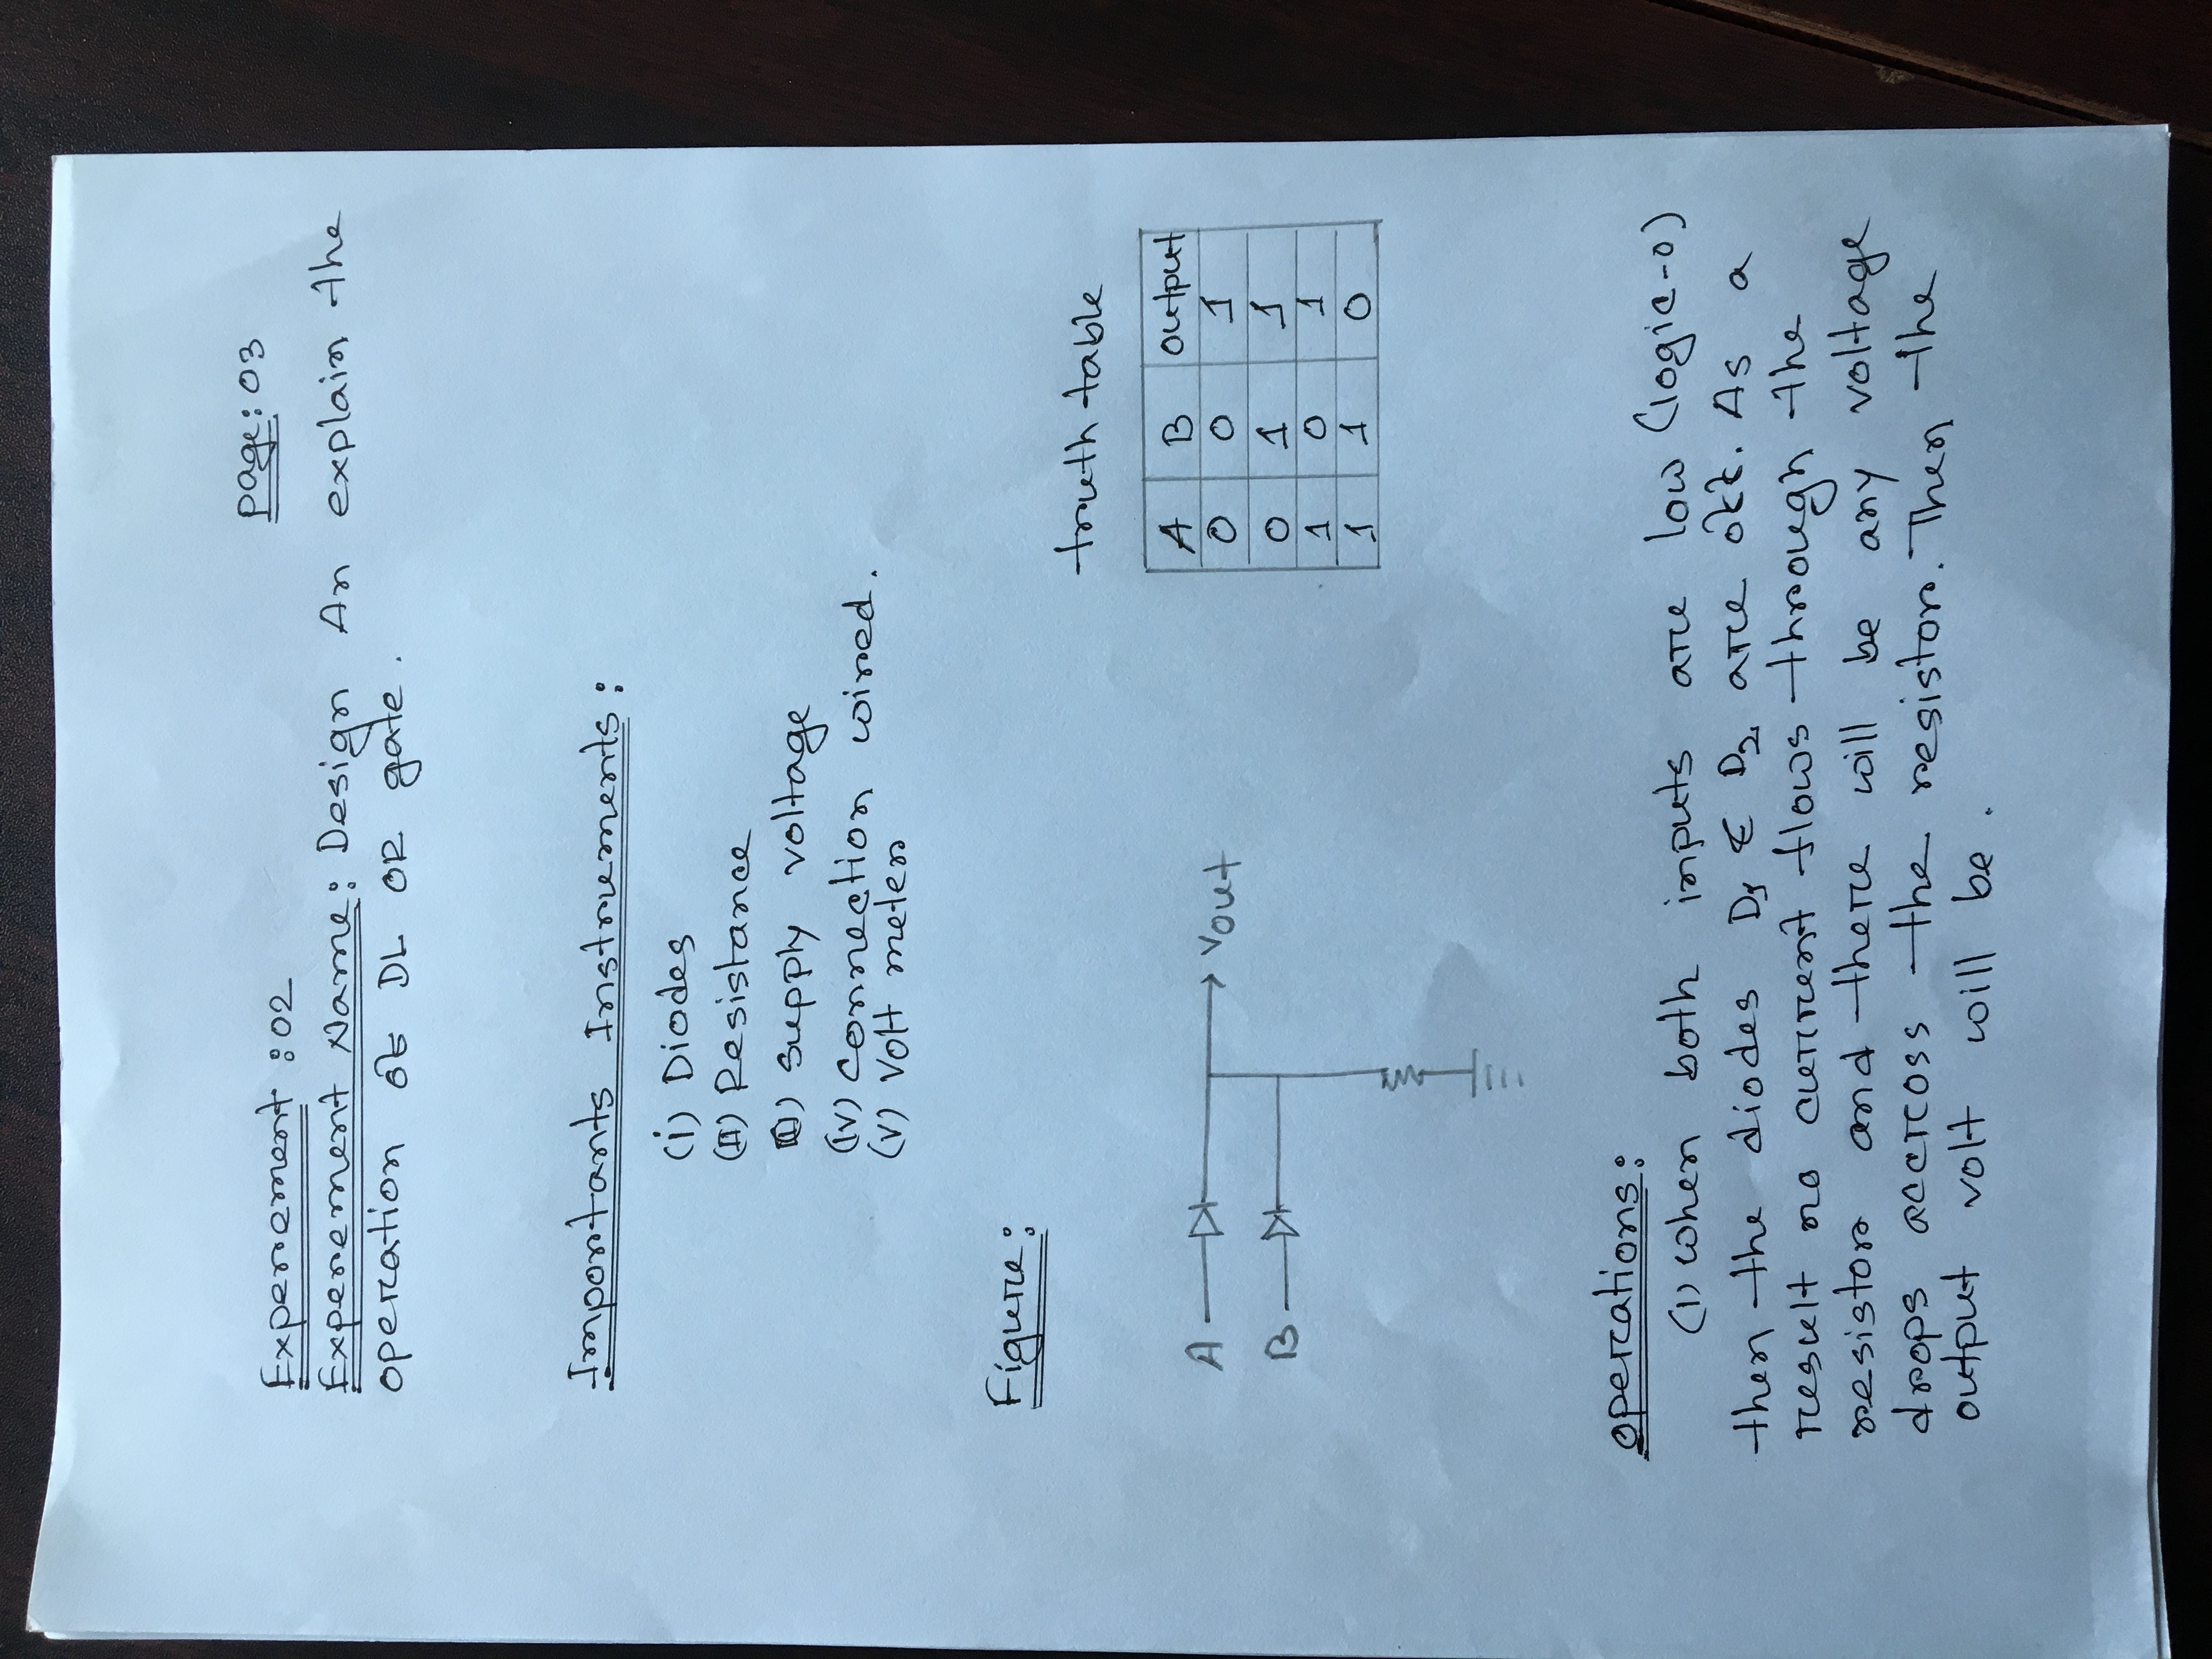 page: 03
Experement : 02
Experement Name: Design An explain the
operation of DL OR gate.
Importants Instruments:
(i) Diodes
(II) Resistance
) Supply voltage
(IV) Connection wired.
(V) Volt meter
Figure:
truth table
A B output
0 0 1
0 1 1
1 0 1
1 1 0
A
Vout
B
operations:
(1) when both inputs are low (logic-0)
then the diodes D1 & D2 are off. As a
result no current flows through the
resistor and there will be any voltage
drops accross the resistor. Then the
output volt will be .